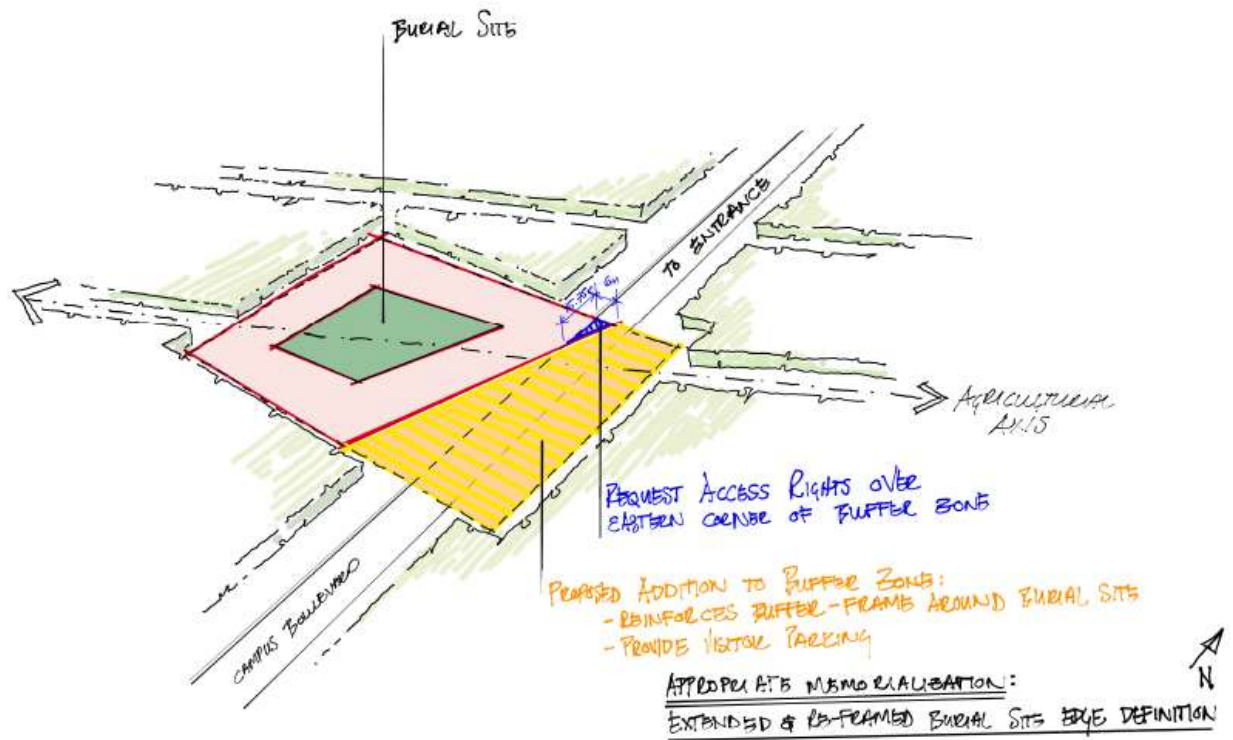 BURIAL SITE
TO ENTRANCE
6m
AGRICULTURAL
AXIS
REQUEST ACCESS RIGHTS OVER
EASTERN CORNER OF BUFFER ZONE
PROPOSED ADDITION TO BUFFER ZONE:
- REINFORCES BUFFER-FRAME AROUND BURIAL SITE
- PROVIDE VISITOR PARKING
CAMPUS BOULEVARD
N
APPROPRIATE MEMORIALIZATION:
EXTENDED & RE-FRAMED BURIAL SITE EDGE DEFINITION